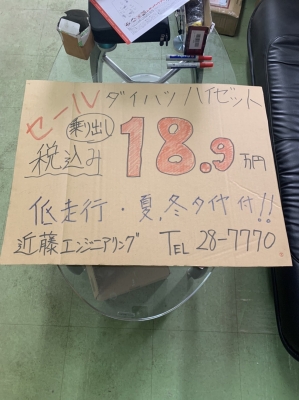 セール ダイハツ ハイゼット
乗り出し
税込み 18.9万円
低走行・夏,冬タイヤ付!!
近藤エンジニアリング TEL 28-7770